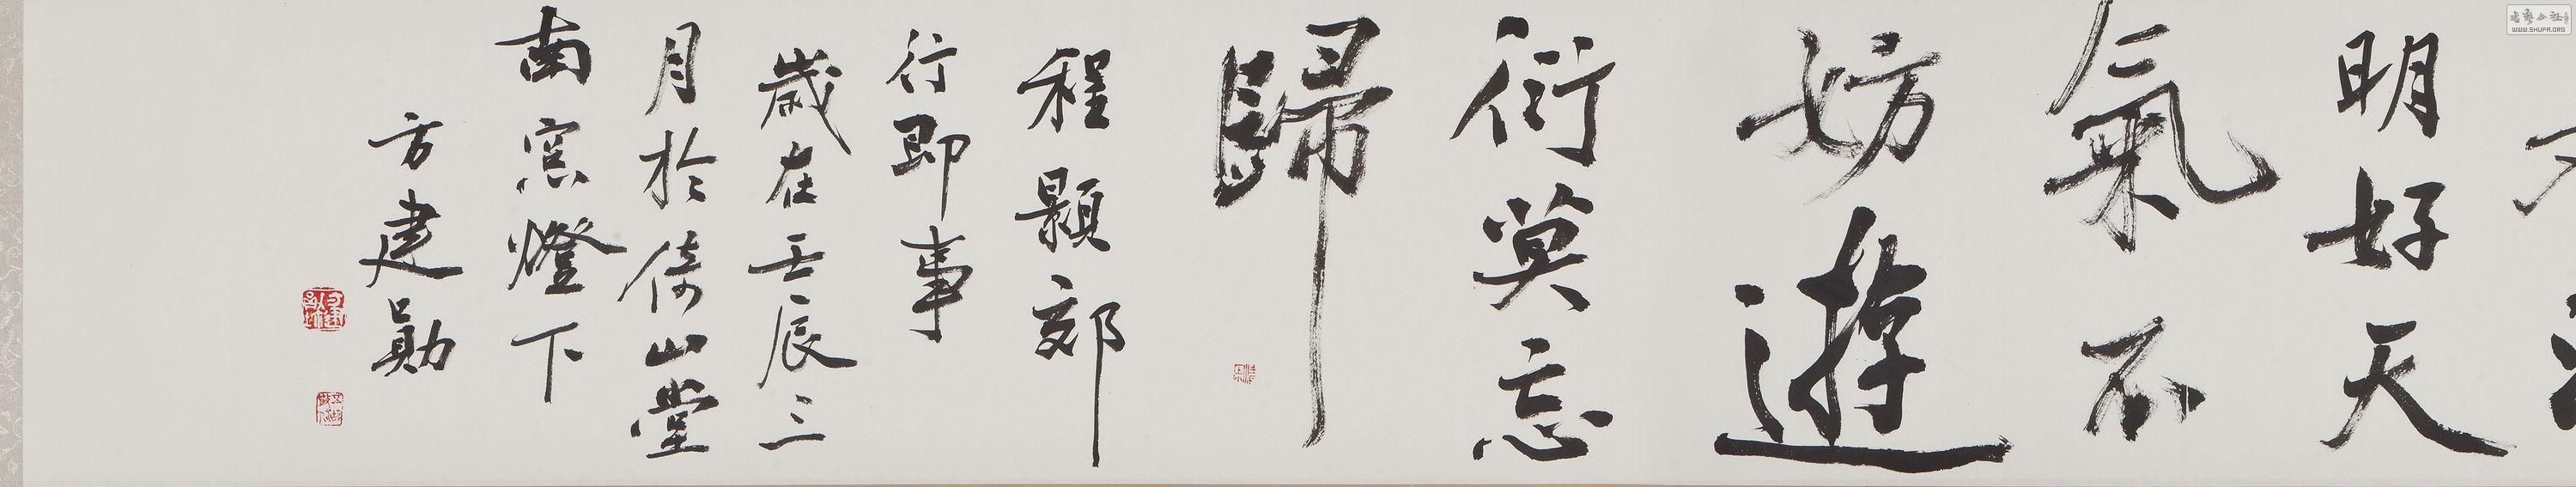 明好天
氣不
妨遊
衍莫忘
歸
程顥郊
行即事
歲在壬辰三
月於倚山堂
南窗燈下
方建勛
WWW.SHUFA.ORG